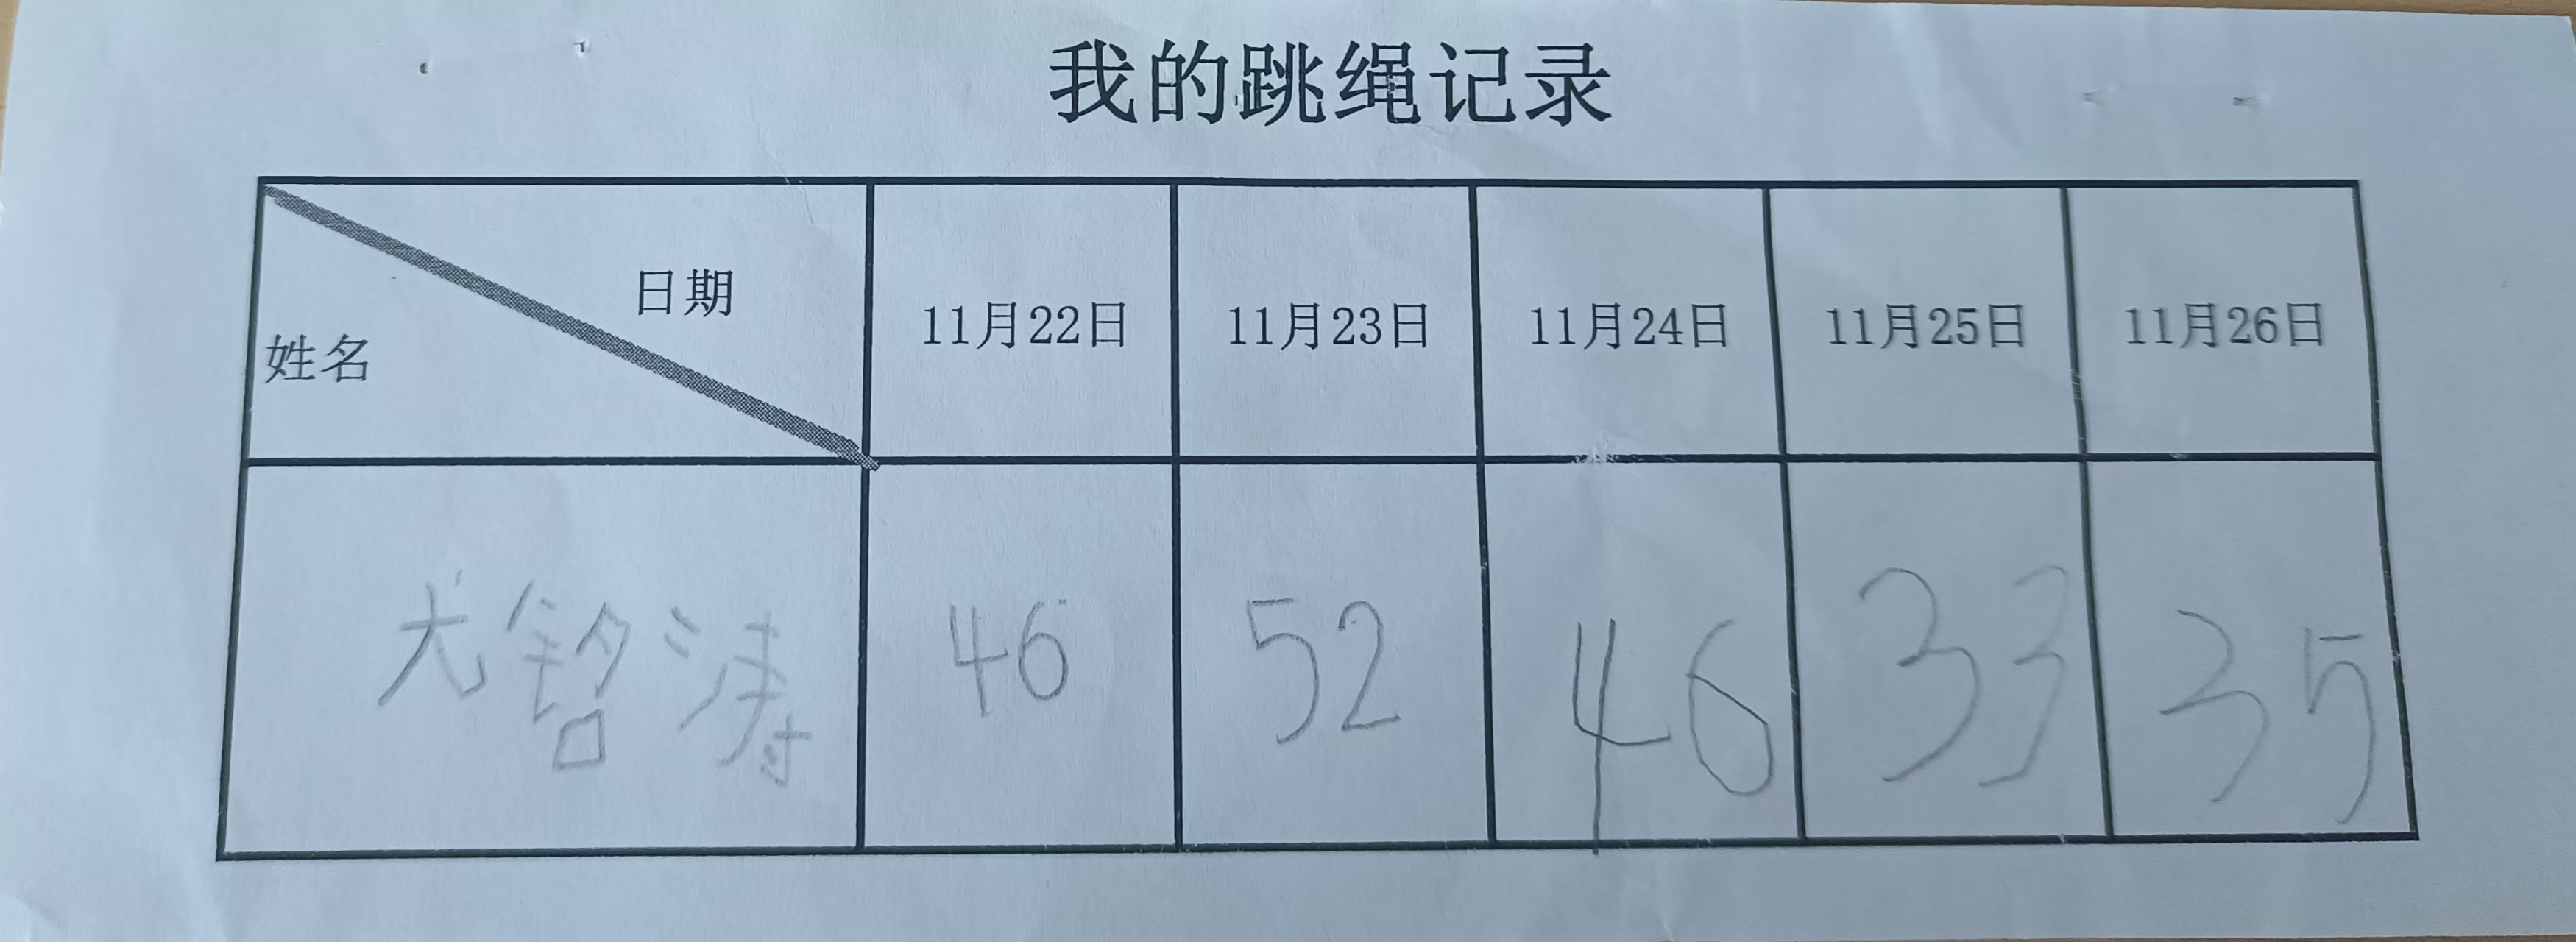 我的跳绳记录
日期
姓名
11月22日 11月23日 11月24日 11月25日 11月26日
尤铭涛 46 52 46 33 35